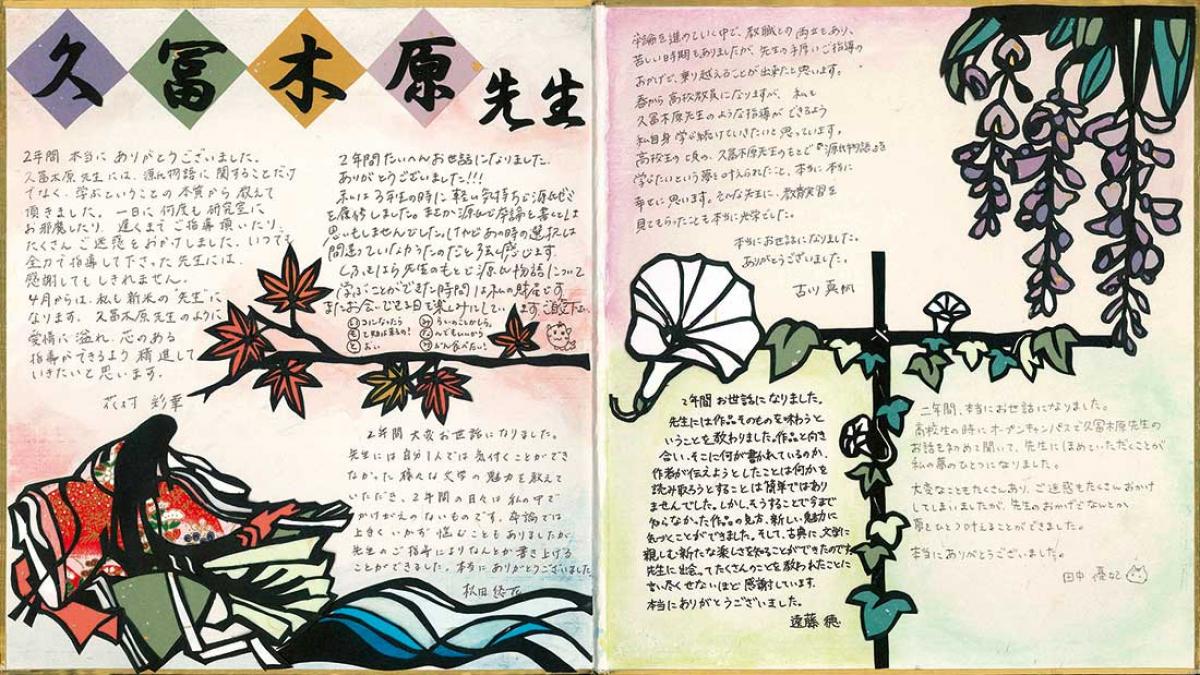 久冨木原先生
2年間 本当に ありがとうございました。
久冨木原先生には、源氏物語に関することだけ
でなく、学ぶということの本質から 教えて
頂きました。一日に何度も 研究室に
お邪魔したり、遅くまで ご指導 頂いたり、
たくさん ご迷惑を おかけしました。いつでも
全力で 指導して下さった 先生には、
感謝しても しきれません。
4月からは、私も 新米の "先生" に
なります。久冨木原先生のように
愛情に 溢れ、芯のある
指導が できるよう 精進して
いきたいと 思います。
2年間たいへんお世話になりました。
ありがとうございました!!!
私は3年生の時に 軽い気持ちで源氏ゼミ
を履修しました。まさか源氏で卒論を書くとは
思いもしませんでした。けれどあの時の選択は
間違っていなかったのだと強く感じます。
先生のもとで源氏物語について
学ぶことができた時間は私の財産です。
またお会いできる日を楽しみにしています。
2年間 大変お世話になりました。
先生には 自分1人では 気付くことができ
なかった 様々な 文学の 魅力を 教えて
いただき、2年間の日々は 私の中で
かけがえのないものです。卒論では
上手くいかず 悩むこともありましたが
先生の ご指導によりなんとか 書き上げる
ことができました。本当に ありがとうございました。
卒論を進めていく中で、教職との 両立もあり、
苦しい時期もありましたが、先生の手厚いご指導の
おかげで、乗り越えることが出来たと思います。
春から 高校教員になりますが、私も
久冨木原先生のような指導が できるよう
私自身 学び続けていきたいと 思っています。
高校生の頃の、久冨木原先生のもとで『源氏物語』を
学びたいという夢を叶えられたこと、本当に 本当に
幸せに 思います。そんな先生に、教育実習を
見てもらったことも本当に光栄でした。
本当にお世話になりました。
ありがとうございました。
古川 真帆
2年間 お世話になりました。
先生には作品そのものを味わうと
いうことを教わりました。作品と向き
合い、そこに何が書かれているのか、
作者が伝えようとしたことは何かを
読み取ろうとすることは簡単ではあり
ませんでした。しかし、そうすることで今まで
知らなかった作品の見方、新しい魅力に
気づくことができました。そして、古典に、文学に
親しむ新たな楽しさを知ることができたのです。
先生に出会ってたくさんのことを教われたことに
言い尽くせないほど 感謝しています。
本当にありがとうございました。
遠藤 穂
二年間、本当にお世話になりました。
高校生の時に オープンキャンパスで久冨木原先生の
お話を初めて聞いて、先生にほめていただくことが
私の夢のひとつになりました。
大変なこともたくさんあり、ご迷惑もたくさんおかけ
してしまいましたが、先生のおかげでなんとか
夢をひとつ叶えることができました。
本当にありがとうございました。